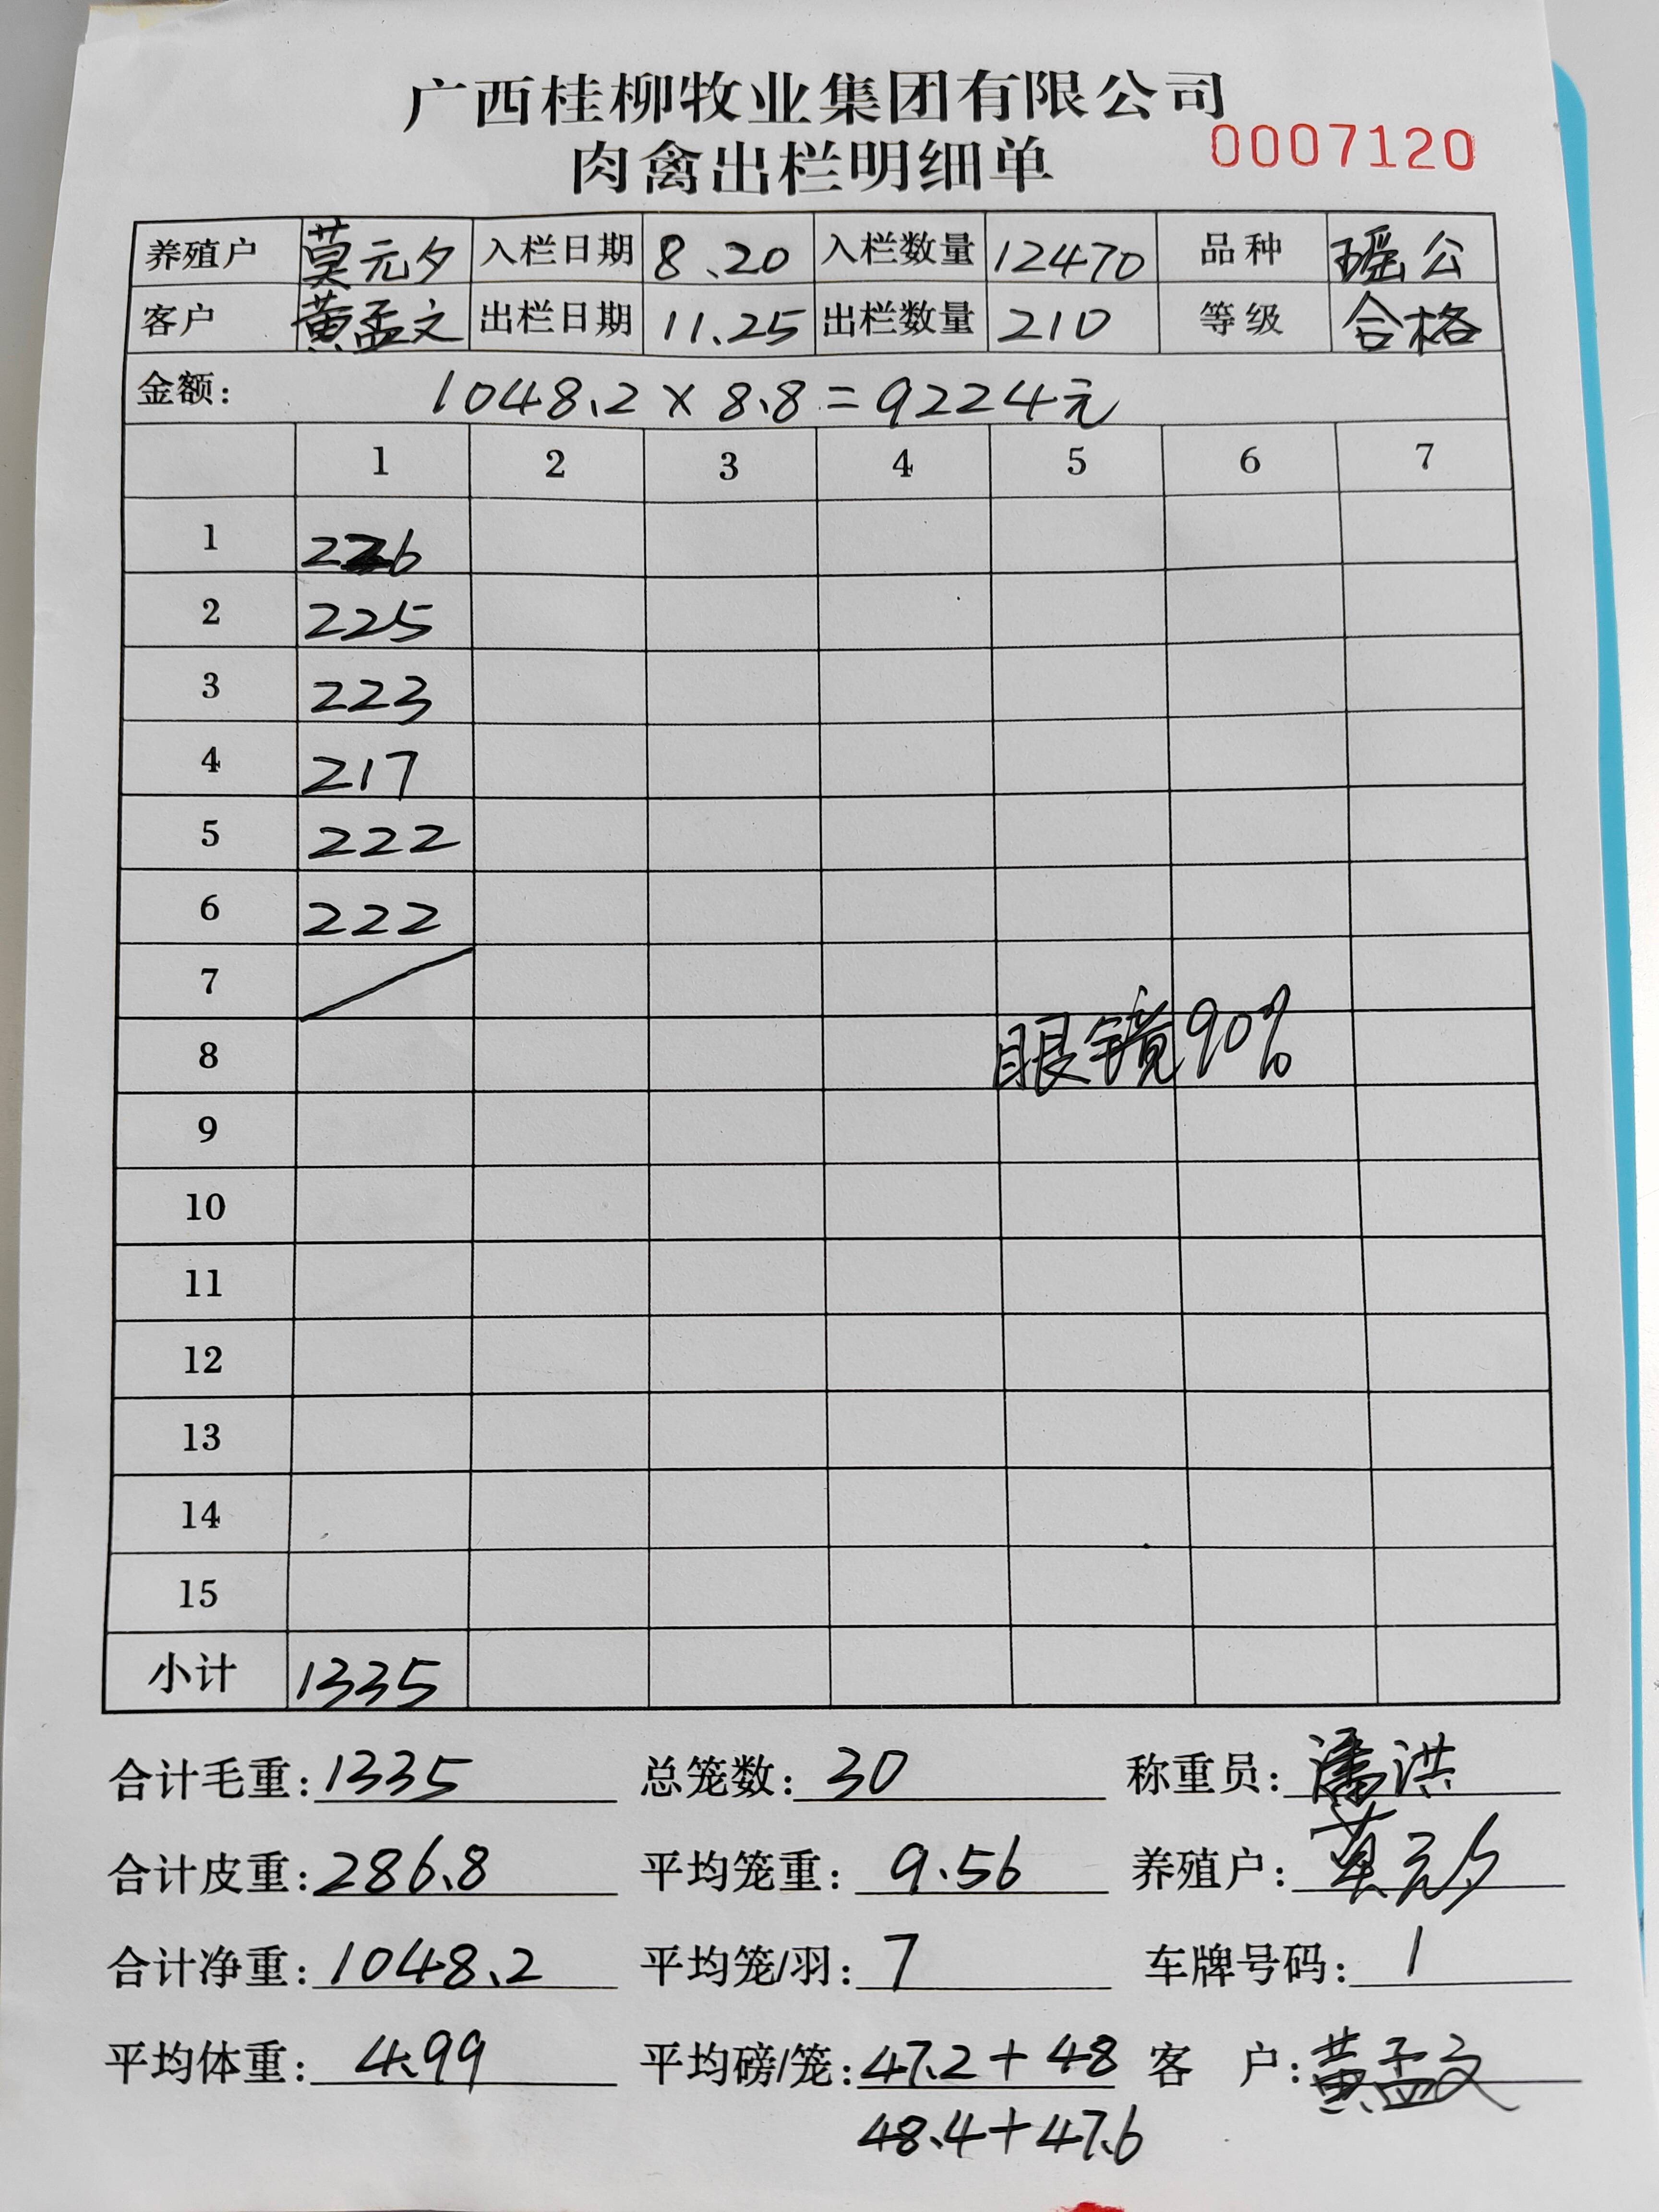 广西桂柳牧业集团有限公司
肉禽出栏明细单 0007120
养殖户 莫元夕 入栏日期 8.20 入栏数量 12470 品种 瑶公
客户 黄孟文 出栏日期 11.25 出栏数量 210 等级 合格
金额: 1048.2 × 8.8 = 9224元
1 2 3 4 5 6 7
1 226
2 225
3 223
4 217
5 222
6 222
7
8 眼镜90%
9
10
11
12
13
14
15
小计 1335
合计毛重: 1335 总笼数: 30 称重员: 潘洪
合计皮重: 286.8 平均笼重: 9.56 养殖户: 莫元夕
合计净重: 1048.2 平均笼/羽: 7 车牌号码: 1
平均体重: 4.99 平均磅/笼: 47.2+48 客户: 黄孟文
48.4+47.6